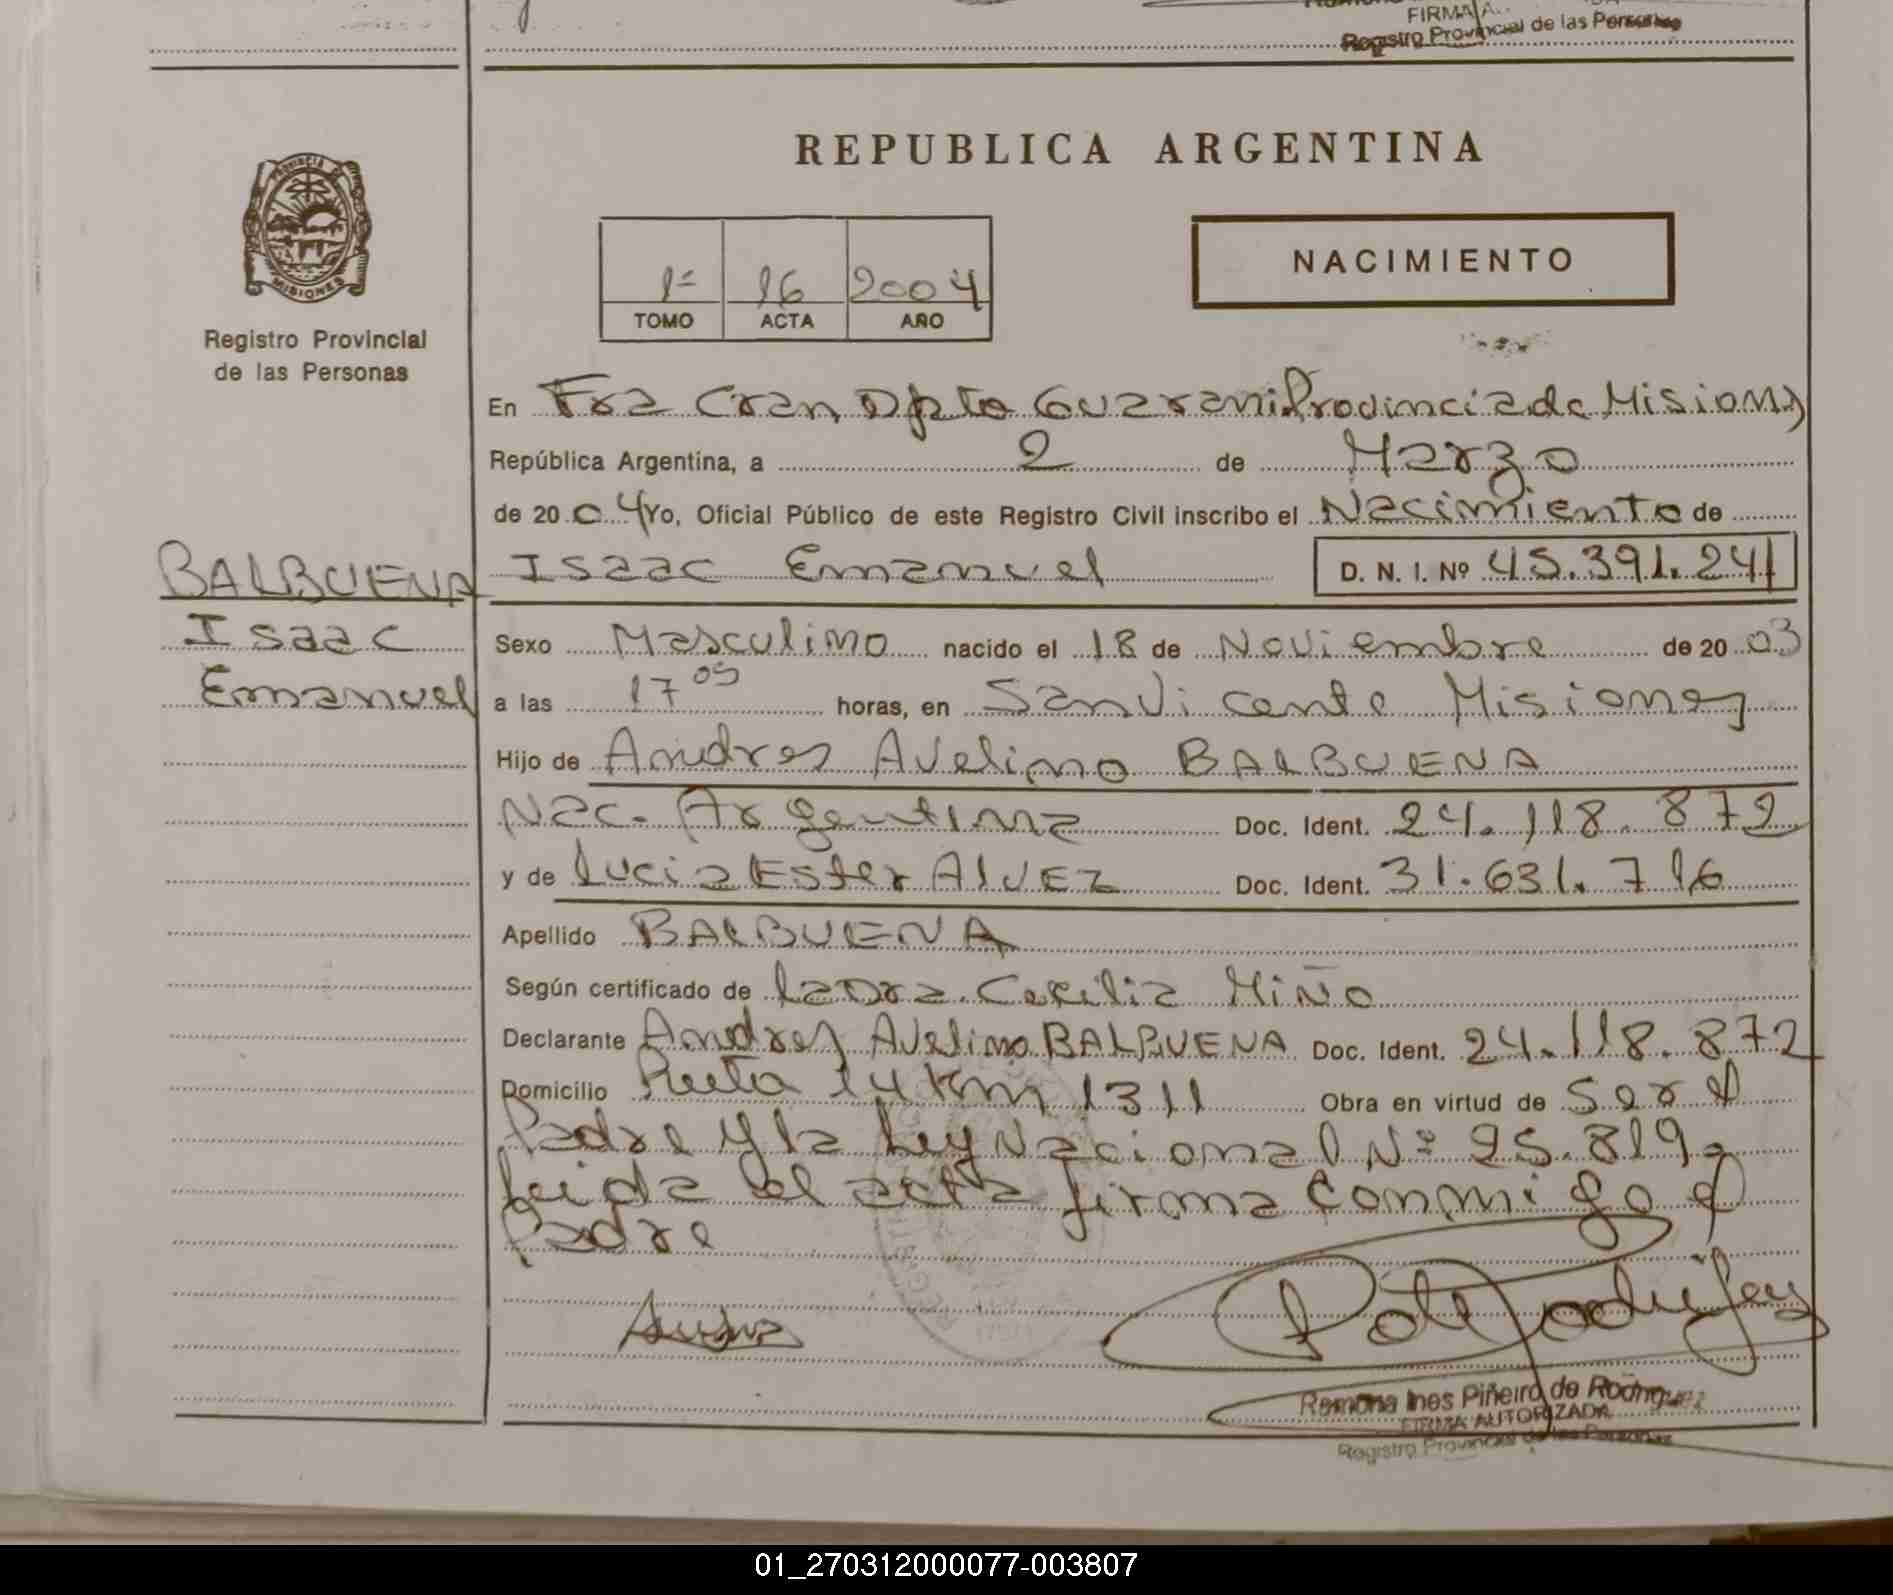 FIRMA A
Registro Provincial de las Personas
REPUBLICA ARGENTINA
PROVINCIA
MISIONES
Registro Provincial
de las Personas
1º 16 2004
TOMO ACTA AÑO
NACIMIENTO
En Fra Cran Dpto Guarani Provincia de Misiones
República Argentina, a 2 de Marzo
de 2004 Yo, Oficial Público de este Registro Civil inscribo el Nacimiento de
Isaac Emanuel D. N. I. Nº 45.391.241
BALBUENA
Isaac
Emanuel
Sexo Masculino nacido el 18 de Noviembre de 2003
a las 17 05 horas, en San Vicente Misiones
Hijo de Andres Avelino BALBUENA
Nac. Argentina Doc. Ident. 24.118.872
y de Lucia Ester ALVEZ Doc. Ident. 31.631.716
Apellido BALBUENA
Según certificado de la Dra. Cecilia Miño
Declarante Andres Avelino BALBUENA Doc. Ident. 24.118.872
Domicilio Ruta 14 Km 1311 Obra en virtud de Ser el
Padre y la Ley Nacional Nº 25.819
Leida el acta firma Conmigo el
Padre
Ramona Ines Piñeiro de Rodriguez
FIRMA AUTORIZADA
Registro Provincial de las Personas
01_270312000077-003807